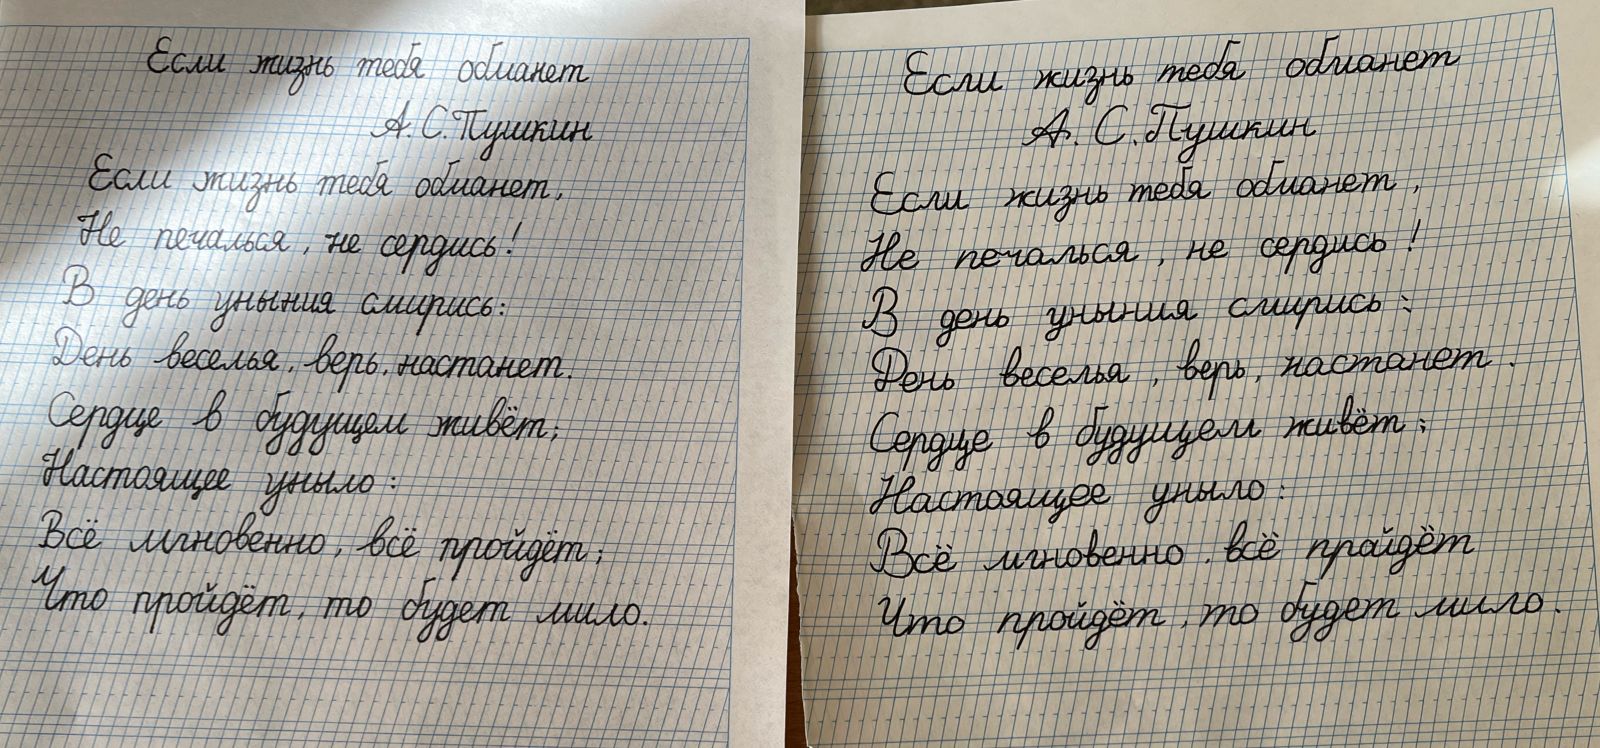 Если жизнь тебя обманет
А. С. Пушкин
Если жизнь тебя обманет,
Не печалься, не сердись!
В день уныния смирись:
День веселья, верь, настанет.
Сердце в будущем живёт;
Настоящее уныло:
Всё мгновенно, всё пройдёт;
Что пройдёт, то будет мило.
Если жизнь тебя обманет
А. С. Пушкин
Если жизнь тебя обманет,
Не печалься, не сердись!
В день уныния смирись:
День веселья, верь, настанет.
Сердце в будущем живёт;
Настоящее уныло:
Всё мгновенно, всё прайдёт
Что пройдёт, то будет мило.